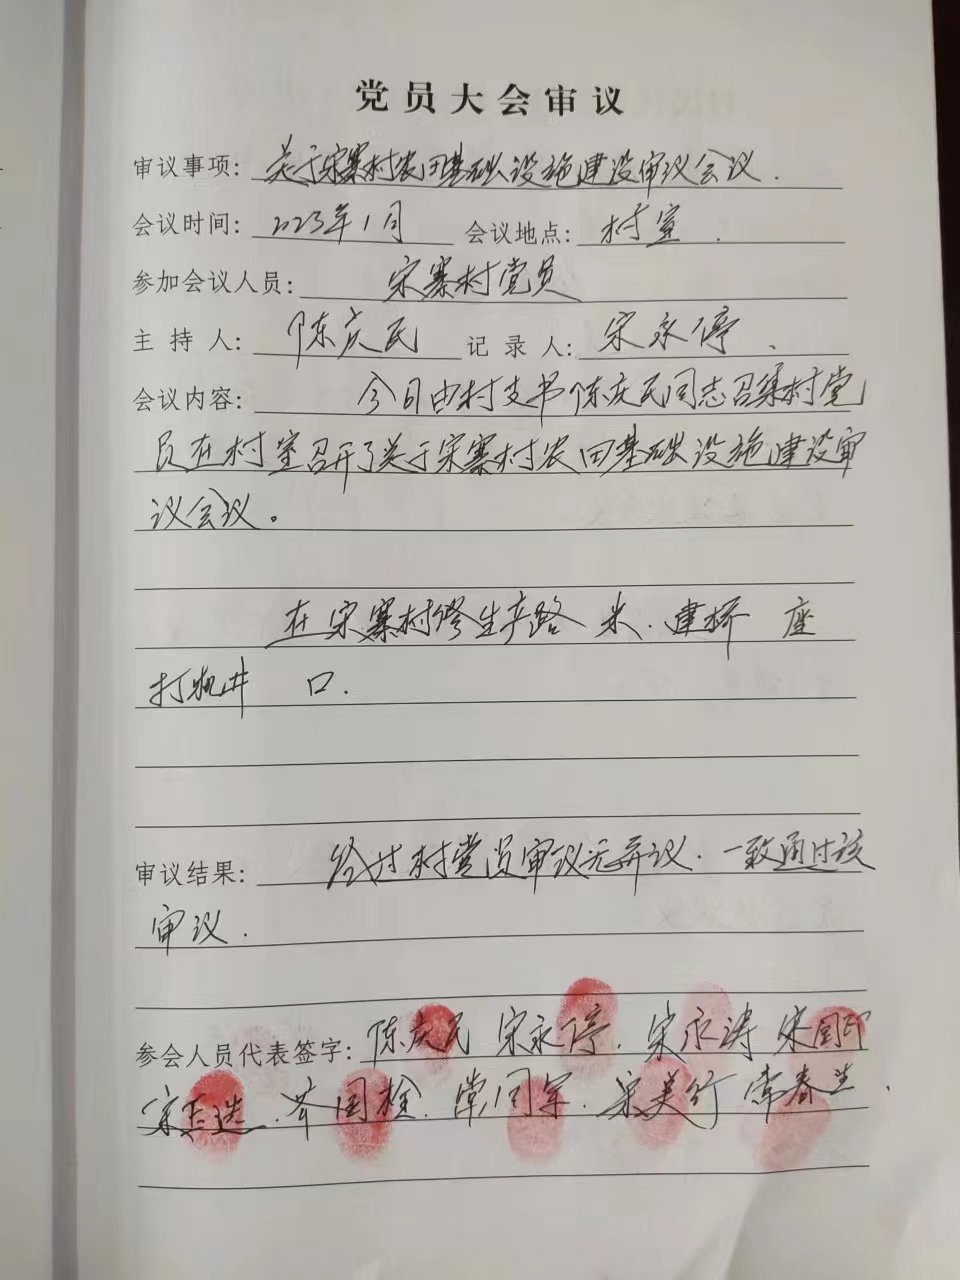 党员大会审议
审议事项：关于宋寨村农田基础设施建设审议会议.
会议时间：2023年1月 会议地点：村室.
参加会议人员：宋寨村党员
主持人：陈庆民 记录人：宋永停、
会议内容：今日由村支书陈庆民同志召集村党
员在村室召开了关于宋寨村农田基础设施建设审
议会议。
在宋寨村修生产路 米.建桥 座
打机井 口.
审议结果：经过村党员审议无异议.一致通过该
审议.
参会人员代表签字：陈庆民 宋永停.宋永涛 宋国印
宋志选.齐国栓.常同军.宋美行 常春兰.